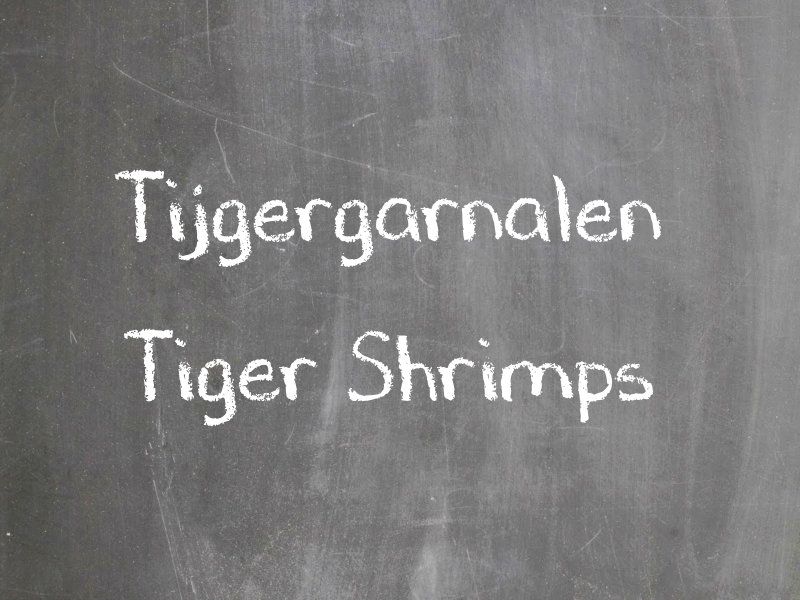 Tijgergarnalen
Tiger Shrimps